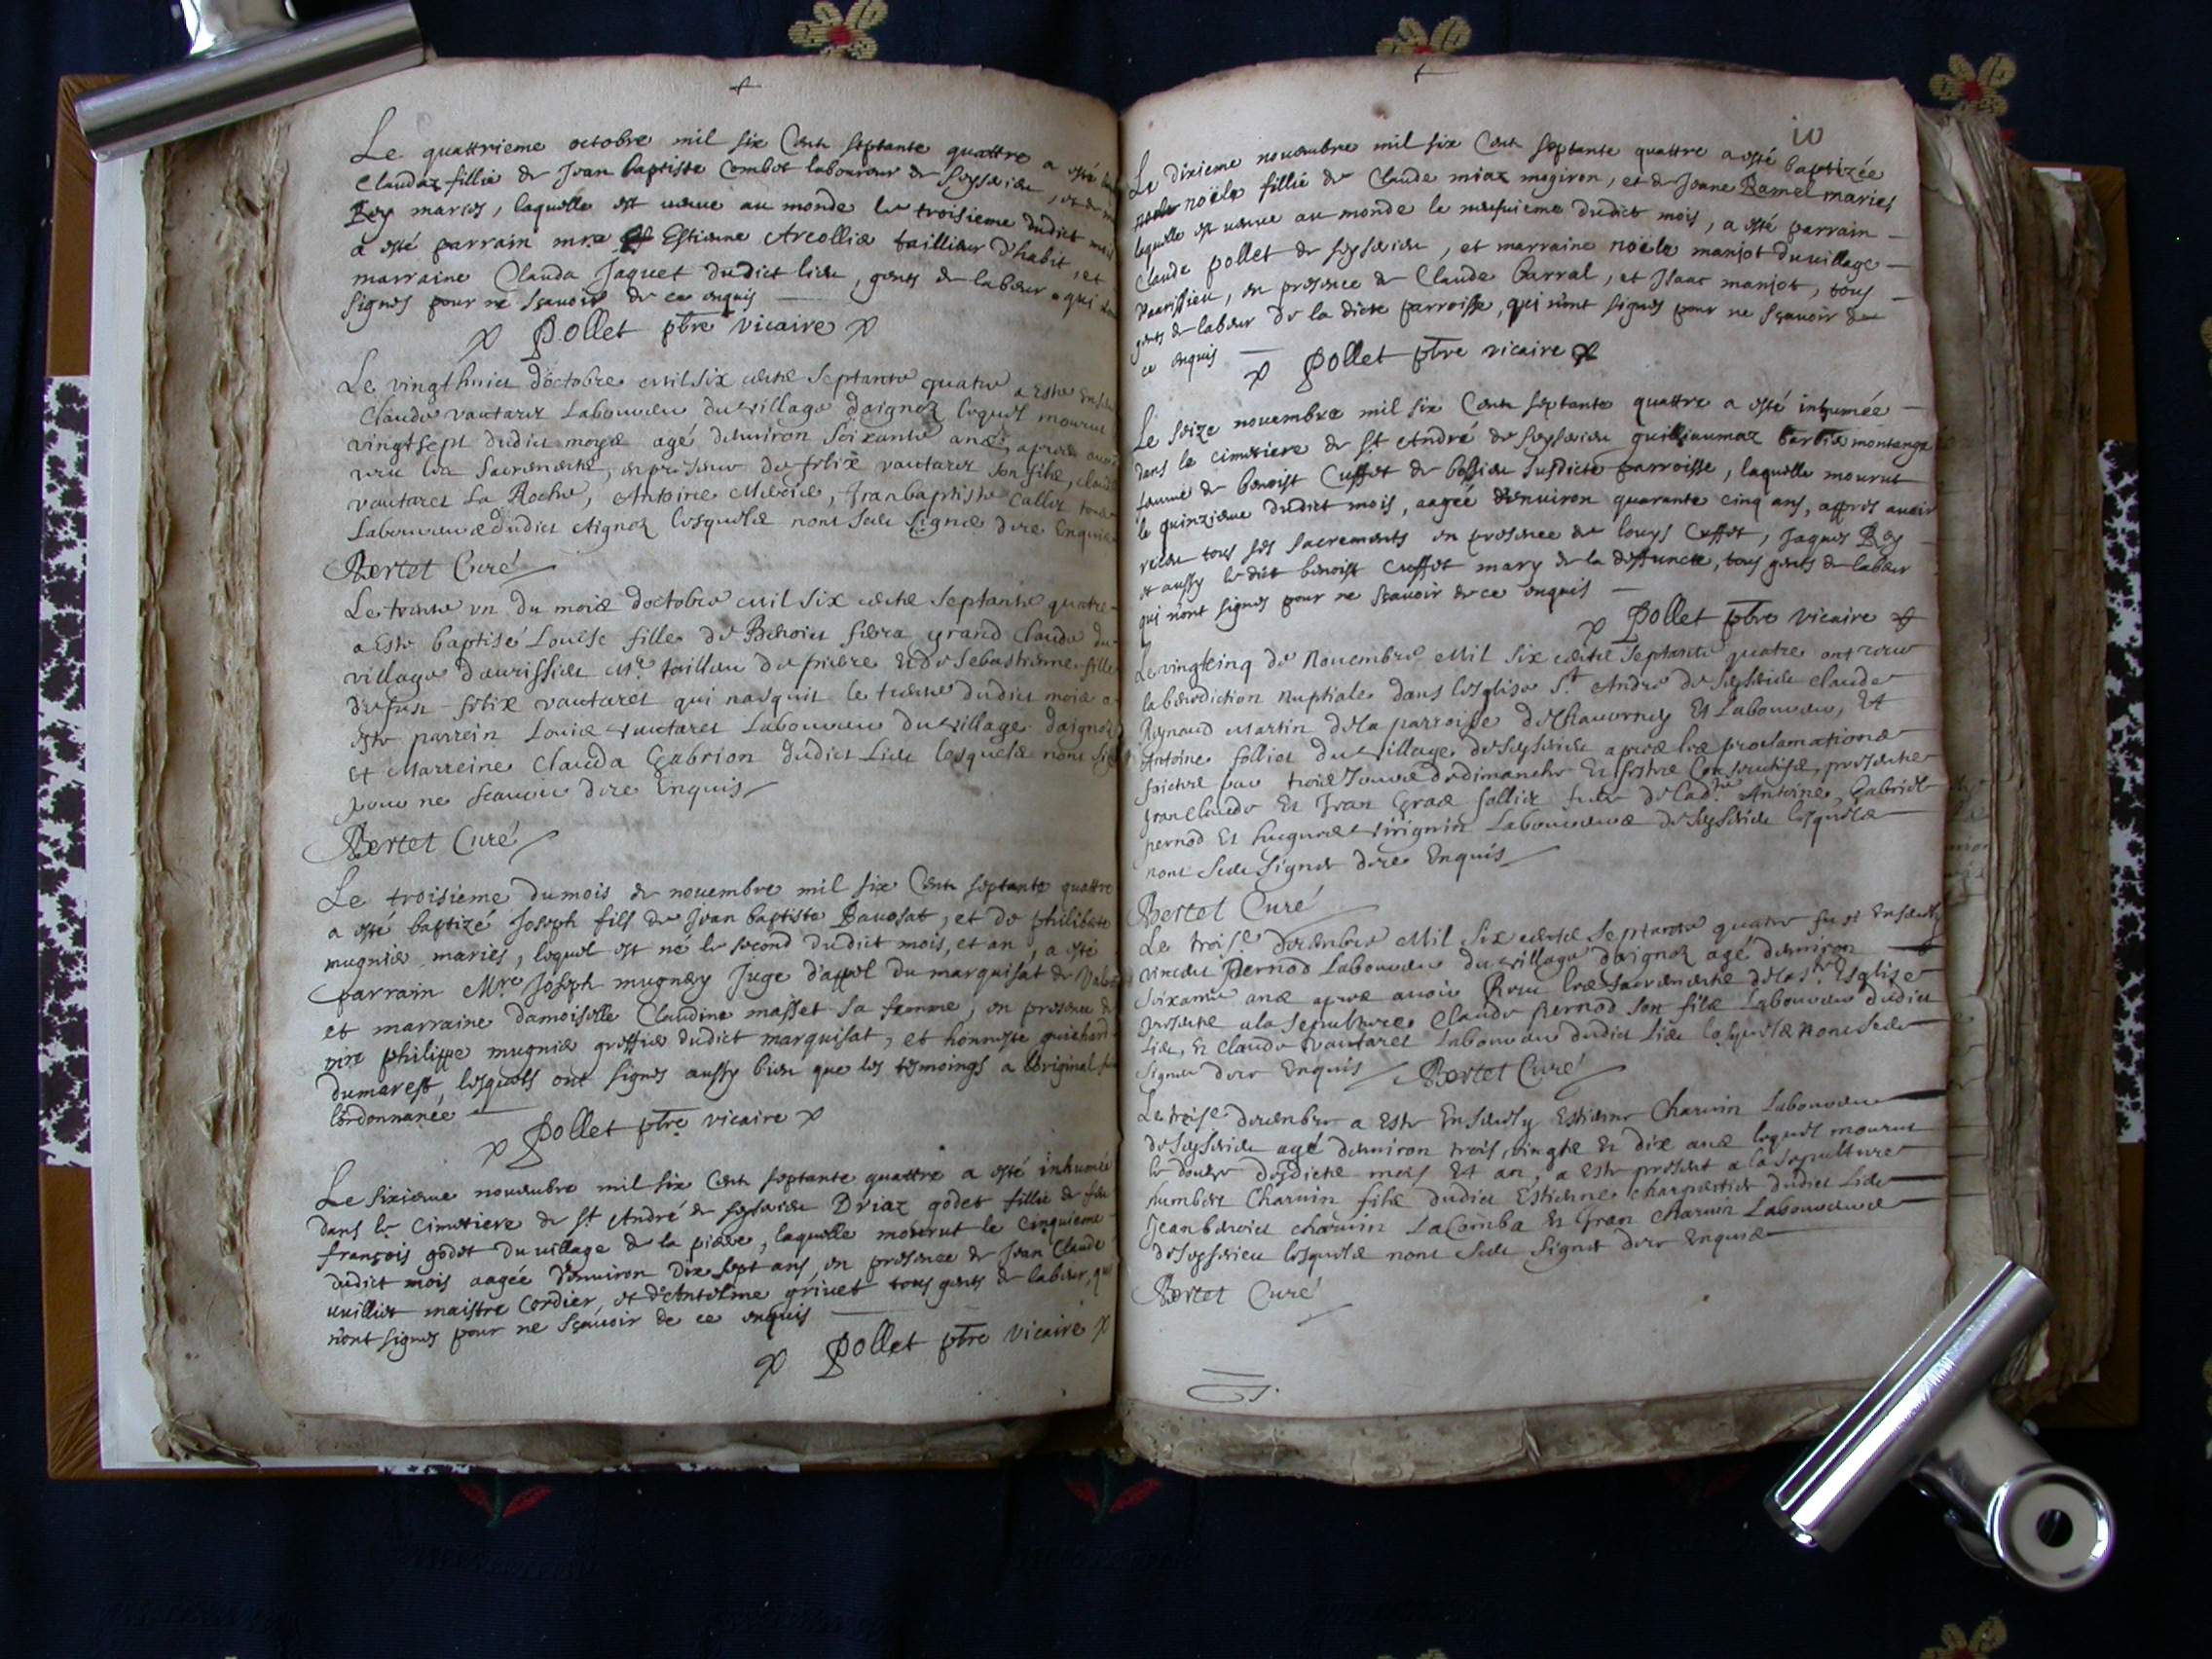 Le quattrieme octobre mil six Cent septante quattre a esté
Claudaz fillie de Jean baptiste Combet laboureur de seysseieu, et de
Rey mariés, laquelle est venue au monde le troisieme dudict mois
a esté parrain mre Estienne Arcollié taillieur d'habit, et
marraine Clauda Jaquet dudict lieu, gents de labeur qui
signes pour ne sçavoir de ce enquis
Pollet pbre vicaire
Le vingthuict doctobre mil six cents septante quatre a este
Claude vautaret Laboureur du village daignoz lequel mourut
vingtsept dudict moys agé denviron soixante ans, apres avoir
receu les Sacrements, en presence de felix vautaret son fils, claude
vautaret La Roche, Antoine Mercie, Jranbaptiste Callet tous
Laboureurs dudict Aignoz lesquels nont sceu signer dece Enquis
Bertet Curé
Le trente un du mois doctobre mil six cents septante quatre
a Este baptisé Louise fille de Benoict serra grand Claude du
village daurissieu mre tailleur de pierre et de Sebastienne fille
de feu felix vautaret qui nasquit le trente dudict mois a
este parrein Louis vautaret Laboureur du village daignoz
Et Marreine Clauda Gabrion dudict Lieu lesquels nont
pour ne scavoir dece Enquis
Bertet Curé
Le troisieme du mois de novembre mil six Cent septante quattre
a esté baptizé Joseph fils de Jean baptiste Bavosat, et de philiberte
mugnié mariés, lequel est né le second dudict mois, et an, a esté
parrain Mre Joseph mugnier Juge d'appel du marquisat de
et marraine damoiselle Claudine masset sa femme, en presence de
mre philippe mugnié greffié dudict marquisat, et honneste guichard
dumarest, lesquels ont signes aussy bien que les tesmoings a l'original
l'ordonnance
Pollet pbre vicaire
Le sixieme novembre mil six Cent septante quattre a esté inhumée
dans le Cimetiere de st André de seysseieu Driaz godet fillie de feu
françois godet du village de la pierre, laquelle mourut le Cinquieme
dudict mois aagée d'environ dix sept ans, en presence de Jean Claude
vuillier maistre Cordier, et d'Antelme grivet tous gents de labeur, qui
n'ont signes pour ne sçavoir de ce enquis
Pollet pbre vicaire
10
Le dixieme novembre mil six Cent septante quattre a esté baptizée
noële fillie de Claude miaz megiron, et de Jeane Ramel mariés
laquelle est venue au monde le neufuieme dudict mois, a esté parrain
Claude pollet de seysseieu, et marraine noële manjot du village
, en presence de Claude barral, et Isaac manjot, tous
gents de labeur de la dicte parroisse, qui n'ont signes pour ne sçavoir de
ce enquis
Pollet pbre vicaire
Le seize novembre mil six Cent septante quattre a esté inhumée
dans le cimetiere de st André de seysseieu guilliaumaz barbié montange
femme de benoist Cuffet de bessieu susdicte parroisse, laquelle mourut
le quinzieme dudict mois, aagée d'environ quarante cinq ans, appres avoir
receu tous ses sacrements en presence de louys Cuffet, Jaques Rey
et aussy ledict benoist Cuffet mary de la deffuncte, tous gents de labeur
qui n'ont signes pour ne sçavoir de ce enquis
Pollet pbre vicaire
Le vingtcinq de Novembre Mil Six cents septante quatre ont receu
la benediction nuptiale dans lesglise St André de seysseieu claude
Reynaud martin de la parroisse de Chavorney Et Laboureur, Et
Antoine folliet du village de seysseieu apres les proclamations
faictes par trois jours de dimanche Et festes Consecutifs, presents
Jran Claude Et Jran folliet de lade Antoine, Gabriel
pernod Et hugues virignin Laboureurs de seysseieu lesquels
nont Sceu Signer dece Enquis
Bertet Curé
Le troise decembre Mil Six cents Septante quatre fust Ensevely
vincent Pernod Laboureur du village daignoz agé denviron
soixante ans apres avoir Receu les sacrements de la ste Esglise
presents a la Sepulture Claude Pernod Son fils Laboureur dudict
Lieu, Et Claude vautaret Laboureur dudict Lieu lesquels Nont sceu
Signer dece Enquis Bertet Curé
Le treise decembre a Este Ensevely Estienne Charvin Laboureur
de seysseieu agé denviron trois vingts Et dix ans lequel mourut
le douze desdicts mois Et an, a Este present a la sepulture
humbert Charvin fils dudict Estienne charpentier dudict Lieu
Jean benoict charvin La Comba Et Jran charvin Laboureurs
de Seysseieu lesquels nont sceu signer dece Enquis
Bertet Curé